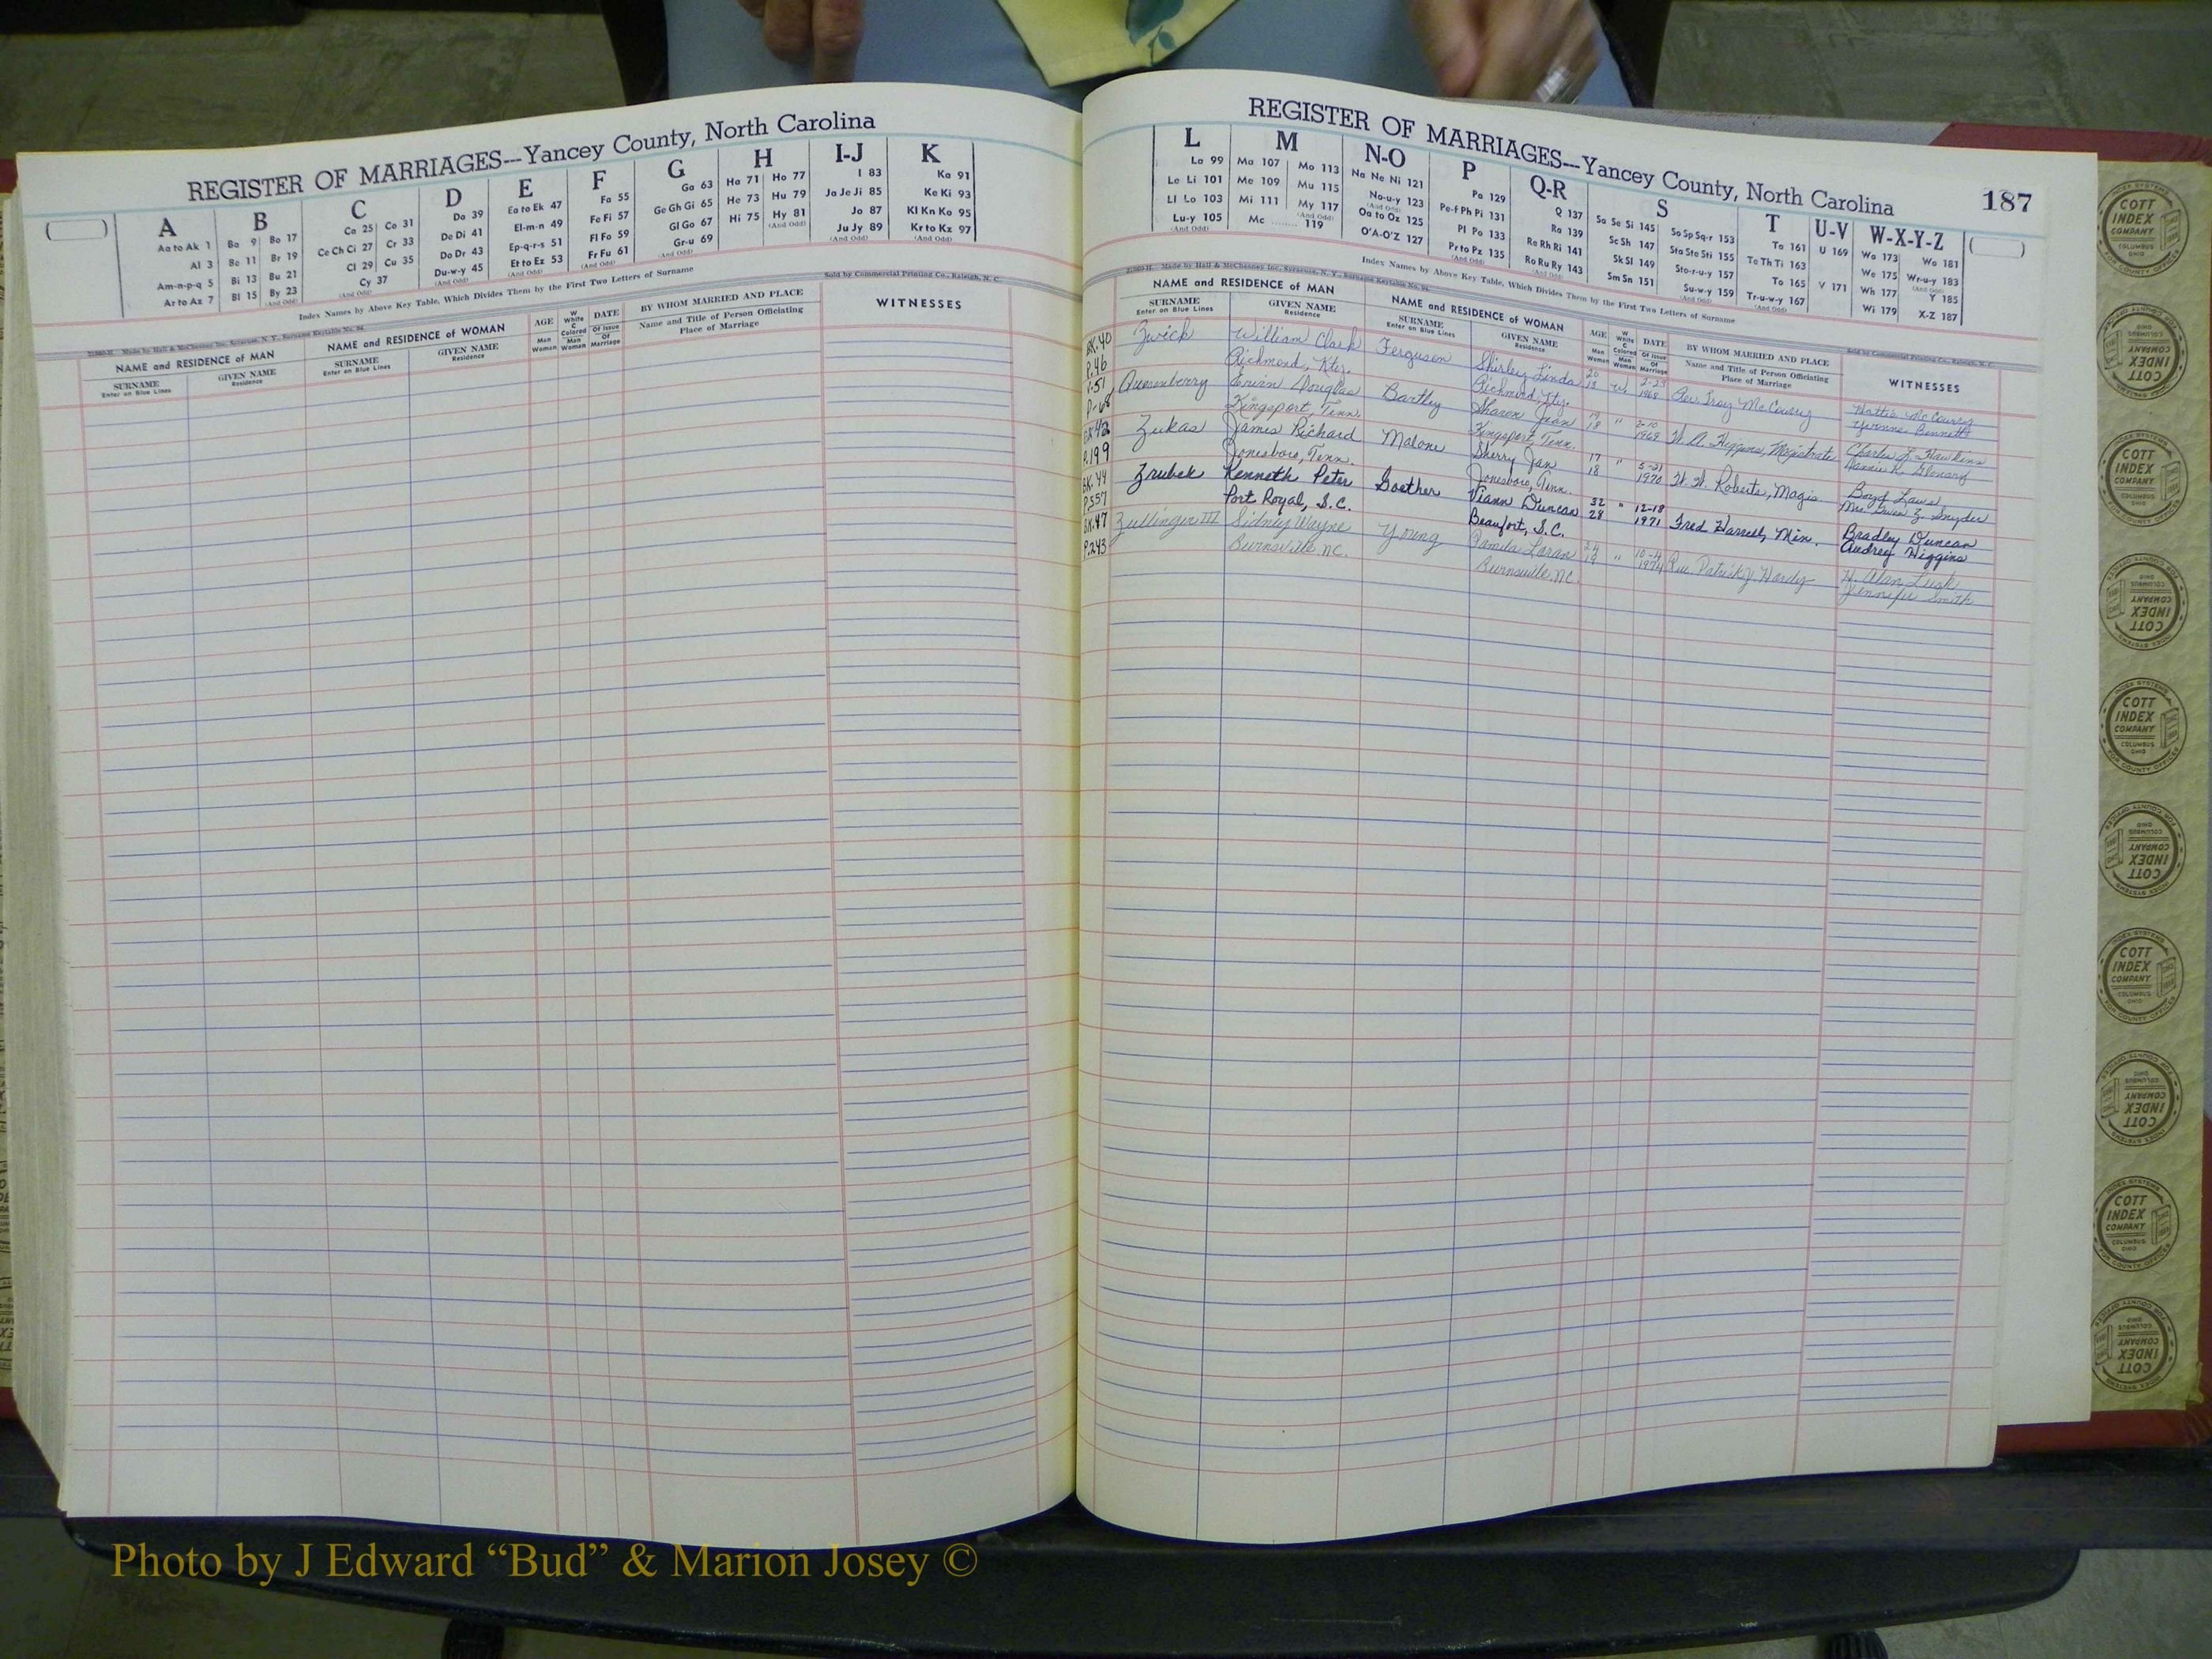 REGISTER OF MARRIAGES---Yancey County, North Carolina
A
Aa to Ak 1
Al 3
Am-n-p-q 5
Ar to Az 7
B
Ba 9 Bo 17
Be 11 Br 19
Bi 13 Bu 21
Bl 15 By 23
(And Odd)
C
Ca 25 Co 31
Ce Ch Ci 27 Cr 33
Cl 29 Cu 35
Cy 37
(And Odd)
D
Da 39
De Di 41
Do Dr 43
Du-w-y 45
(And Odd)
E
Ea to Ek 47
El-m-n 49
Ep-q-r-s 51
Et to Ez 53
(And Odd)
F
Fa 55
Fe Fi 57
Fl Fo 59
Fr Fu 61
(And Odd)
G
Ga 63
Ge Gh Gi 65
Gl Go 67
Gr-u 69
(And Odd)
H
Ha 71 Ho 77
He 73 Hu 79
Hi 75 Hy 81
(And Odd)
I-J
I 83
Ja Je Ji 85
Jo 87
Ju Jy 89
(And Odd)
K
Ka 91
Ke Ki 93
Kl Kn Ko 95
Kr to Kz 97
(And Odd)
Index Names by Above Key Table, Which Divides Them by the First Two Letters of Surname
Made by Hall & McChesney Inc., Syracuse, N. Y., Surname Keytable No.
Sold by Commercial Printing Co., Raleigh, N. C.
NAME and RESIDENCE of MAN
SURNAME
Enter on Blue Lines
GIVEN NAME
Residence
NAME and RESIDENCE of WOMAN
SURNAME
Enter on Blue Lines
GIVEN NAME
Residence
AGE
Man
Woman
W
White
C
Colored
Man
Woman
DATE
Of Issue
Of
Marriage
BY WHOM MARRIED AND PLACE
Name and Title of Person Officiating
Place of Marriage
WITNESSES
REGISTER OF MARRIAGES---Yancey County, North Carolina
187
L
La 99
Le Li 101
Ll Lo 103
Lu-y 105
(And Odd)
M
Ma 107 Mo 113
Me 109 Mu 115
Mi 111 My 117
(And Odd)
Mc ........ 119
N-O
Na Ne Ni 121
No-u-y 123
(And Odd)
Oa to Oz 125
O'A-O'Z 127
P
Pa 129
Pe-f Ph Pi 131
Pl Po 133
Pr to Pz 135
(And Odd)
Q-R
Q 137
Ra 139
Re Rh Ri 141
Ro Ru Ry 143
(And Odd)
S
Sa Se Si 145 So Sp Sq-r 153
Sc Sh 147 Sta Ste Sti 155
Sk Sl 149 Sto-r-u-y 157
Sm Sn 151 Su-w-y 159
(And Odd)
T
Ta 161
Te Th Ti 163
To 165
Tr-u-w-y 167
(And Odd)
U-V
U 169
V 171
W-X-Y-Z
Wa 173 Wo 181
We 175 Wr-u-y 183
(And Odd)
Wh 177 Y 185
Wi 179 X-Z 187
Index Names by Above Key Table, Which Divides Them by the First Two Letters of Surname
Made by Hall & McChesney Inc., Syracuse, N. Y., Surname Keytable No.
Sold by Commercial Printing Co., Raleigh, N. C.
NAME and RESIDENCE of MAN
SURNAME
Enter on Blue Lines
GIVEN NAME
Residence
NAME and RESIDENCE of WOMAN
SURNAME
Enter on Blue Lines
GIVEN NAME
Residence
AGE
Man
Woman
W
White
C
Colored
Man
Woman
DATE
Of Issue
Of
Marriage
BY WHOM MARRIED AND PLACE
Name and Title of Person Officiating
Place of Marriage
WITNESSES
BK.40 Zwick William Clark Ferguson Shirley Linda 20 W 2-23 Rev. Troy McCourry Hattie McCourry
P.46 Richmond, Kty. Richmond, Kty. 18 1968 Yvonne Bennett
Quesenberry Douglas Bartley Sharon Jean 19 " 2-10 W. A. Higgins, Magistrate Charles Hawkins
P-68 Kingsport, Tenn. Kingsport, Tenn. 18 1969
BK.42 Zukas James Richard Malone Sherry Jan 17 " 5-21 W. W. Roberts, Magis. Boyd Laws
P.199 Jonesboro, Tenn. Jonesboro, Tenn. 18 1970 Mrs. Snyder
BK.44 Zrubek Kenneth Peter Goether Viann Duncan 32 " 12-18 Fred Harrell, Min. Bradley Duncan
P.557 Port Royal, S.C. Beaufort, S.C. 28 1971 Audrey Higgins
BK.47 Zullinger III Sidney Wayne Young Pamela Loran 24 " 10-4 Rev. Patrick J. Hardy H. Alan Lusk
P.243 Burnsville, NC. Burnsville, NC. 19 1974 Jennifer Smith
INDEX SYSTEMS
COTT
INDEX
COMPANY
COLUMBUS
OHIO
FOR COUNTY OFFICES
Photo by J Edward “Bud” & Marion Josey ©